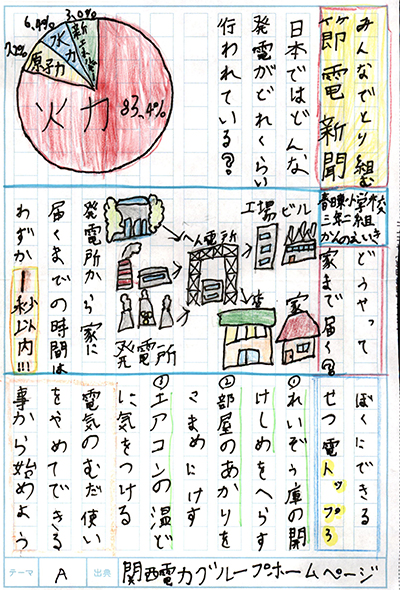 みんなでとり組む
節電新聞
日本ではどんな
発電がどれくらい
行われている?
3.0%
6.4%
水力
7.2%
原子力
火力 83.4%
三年二組
どうやって
家まで届く?
工場 ビル
家
発電所
発電所から家に
届くまでの時間は
わずか1秒以内!!!
ぼくにできる
せつ電トップ3
①れいぞう庫の開
けしめをへらす
②部屋のあかりを
こまめにけす
③エアコンの温ど
に気をつける
電気のむだ使い
をやめてできる
事から始めよう
テーマ A 出典 関西電力グループホームページ